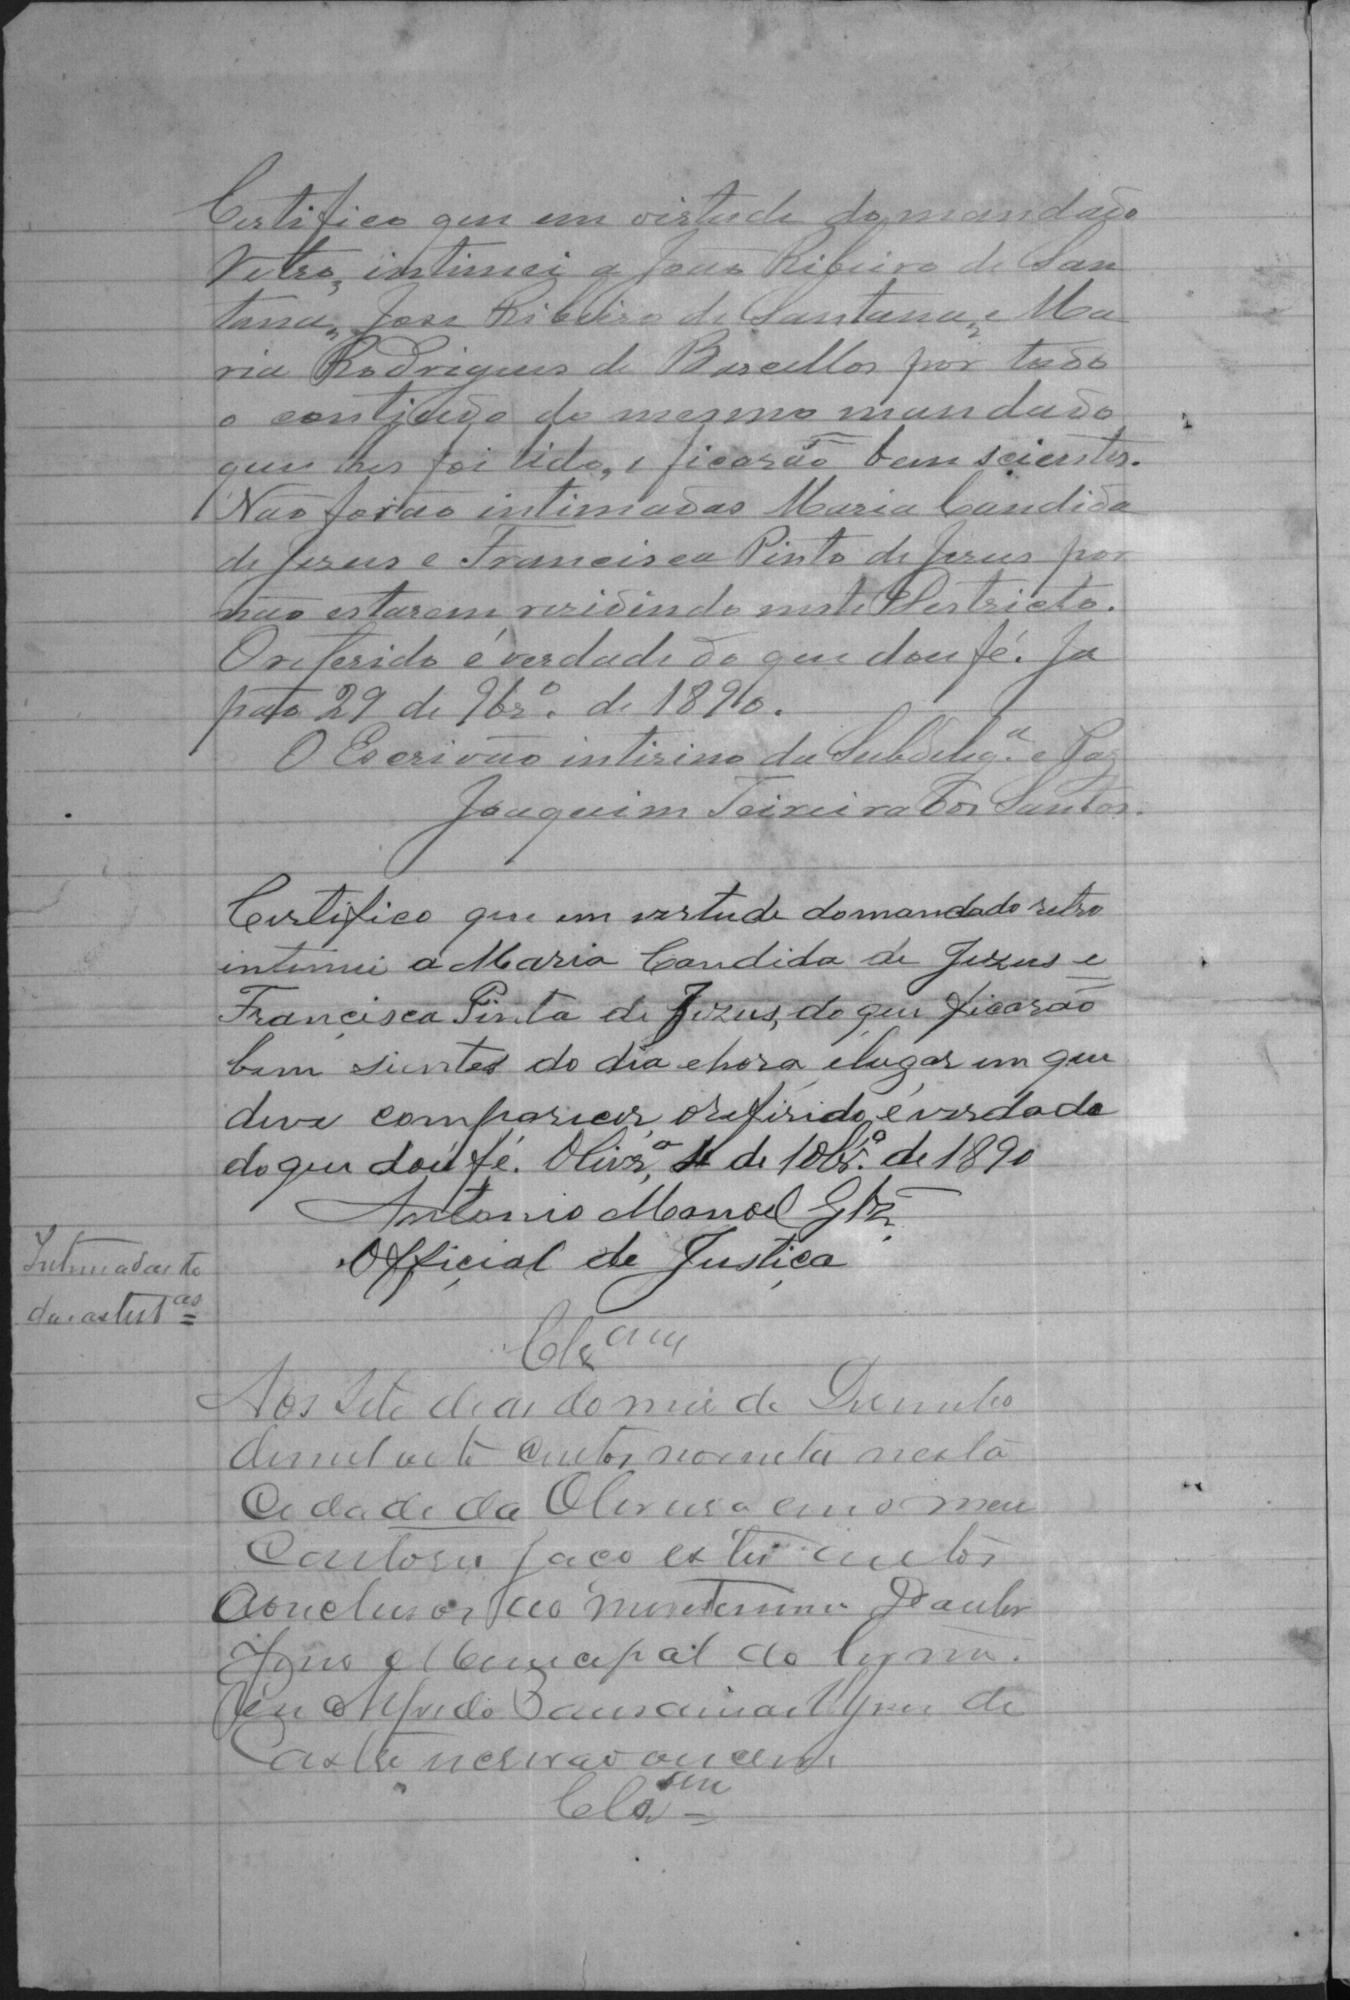 Certifico que em virtude do mandado
retro, intimei a João Ribeiro de San
tana, Jose Ribeiro de Santana, e Ma
ria Rodrigues de Barcellos por todo
o contiudo do mesmo mandado
que lhes foi lido, e ficarão bem scientes.
Não forão intimadas Maria Candida
de Jezus e Francisca Pinto de Jezus por
não estarem rezidindo neste Destricto.
O referido é verdade do que dou fé. Ja
pão 29 de 9br.º de 1890.
O Escrivão intirino da Subdeleg.ª e Paz
Joaquim Teixeira dos Santos.
Certifico que em vertude do mandado retro
intimei a Maria Candida de Jezus e
Francisca Pinta de Jezus, do que ficarão
bem sientes do dia e hora e lugar em que
deve comparicer, o refirido é verdade
do que dou fé. Olivr.ª, 4 de 10br.º de 1890
Antonio Manoel Glz
Official de Justiça
Intimadas to
das as test.as
Clsam
Aos sete dias do mez de Dezembro
de mil oito centos noventa nesta
Cidade da Oliveira em o meu
Cartorio faço estes autos
conclusos ao Meretissimo Doutor
Juiz Municipal do Termo.
Eu Alfredo de
Castro escrivão
Clsam